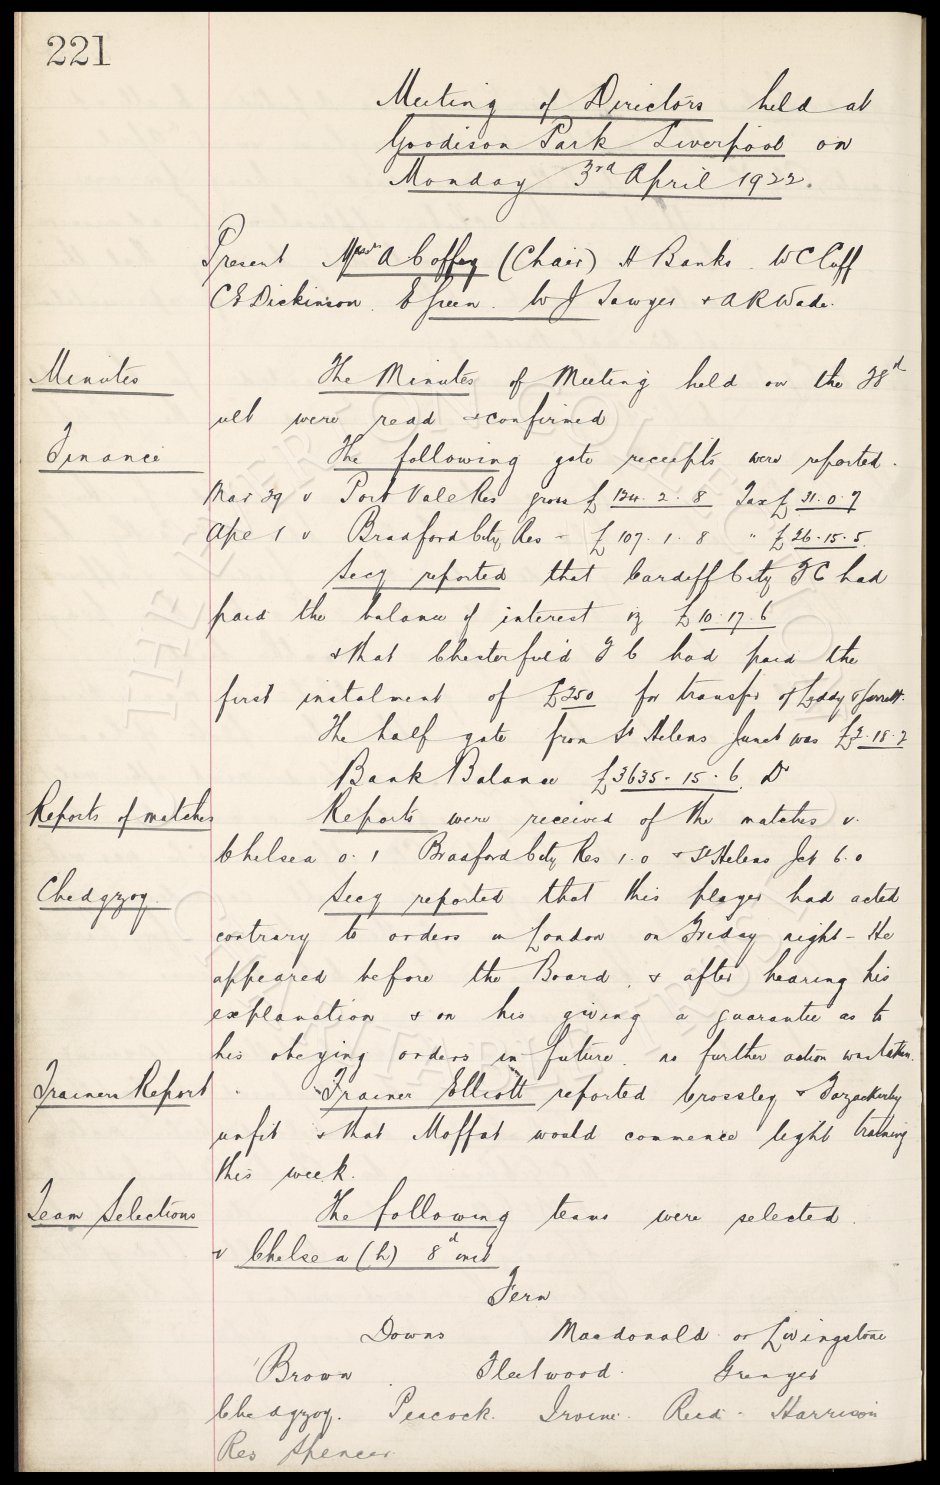 221
Meeting of Directors held at
Goodison Park Liverpool on
Monday 3rd April 1922.
Present Messrs A Coffey (Chair) H Banks. W C Cuff
C E Dickinson. E Green. W J Sawyer & A R Wade.
Minutes The Minutes of Meeting held on the 28d
ult were read & confirmed
Finance The following gate receipts were reported.
Mar 29 v Port Vale Res gross £ 124. 2. 8 Tax £ 31. 0. 7
Apl 1 v Bradford City Res - £ 107. 1. 8 " £ 26. 15. 5
Secy reported that Cardiff City F C had
paid the balance of interest viz £ 10. 17. 6
& that Chesterfield F C had paid the
first instalment of £250 for transfer of Leddy & Jarrett.
The half gate from St Helens Junct was £2. 18. 2
Bank Balance £3635. 15. 6. Dr
Reports of matches Reports were received of the matches v.
Chelsea 0. 1 Bradford City Res 1. 0 & St Helens Jct 6. 0
Chedgzoy. Secy reported that this player had acted
contrary to orders in London on Friday night - He
appeared before the Board, & after hearing his
explanation & on his giving a guarantee as to
his obeying orders in future no further action was taken.
Trainers Report Trainer Elliott reported Crossley & Fazackerley
unfit & that Moffat would commence light training
this week.
Team Selections The following teams were selected.
v Chelsea (h) 8d inst
Fern
Downs Macdonald or Livingstone
Brown Fleetwood. Grenyer
Chedgzoy. Peacock. Irvine. Reid. Harrison
Res Spencer.